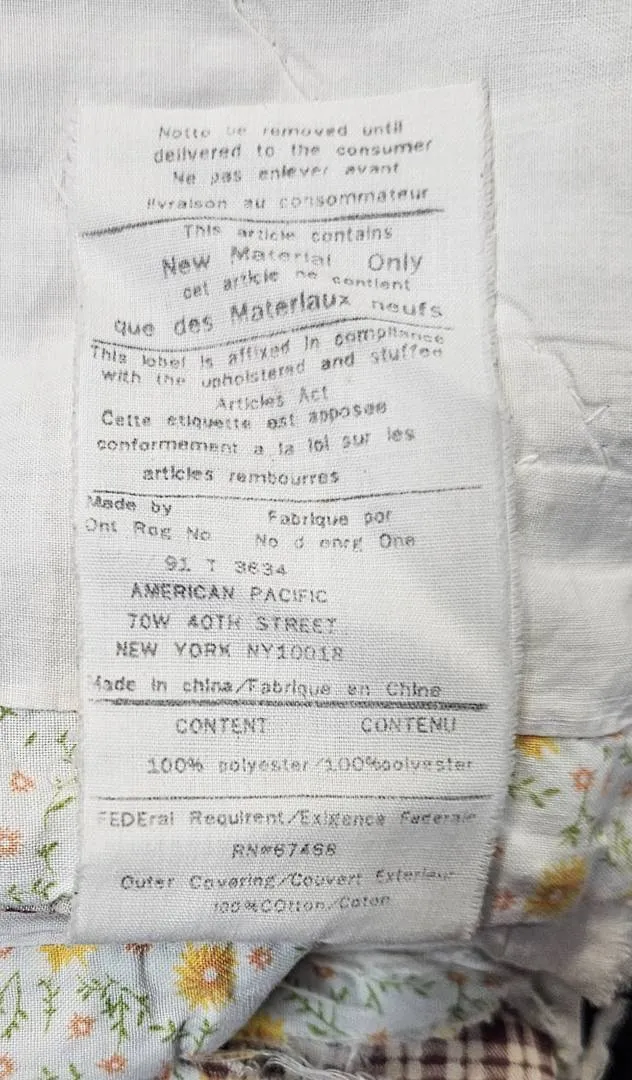 Notto be removed until
delivered to the consumer
Ne pas enlever avant
livraison au consommateur
This article contains
New Material Only
cet article ne contient
que des Materiaux neufs
This label is affixed in compliance
with the upholstered and stuffed
Articles Act
Cette etiquette est apposee
conformement a la loi sur les
articles rembourres
Made by Fabrique par
Ont Rag No No d enrg One
91 T 3634
AMERICAN PACIFIC
70W 40TH STREET
NEW YORK NY10018
Made in china/Fabrique en Chine
CONTENT CONTENU
100% polyester/100%polyester
FEDEral Requirent/Exigence Federale
Outer Covering/Couvert Exterieur
100%COtton/Coton